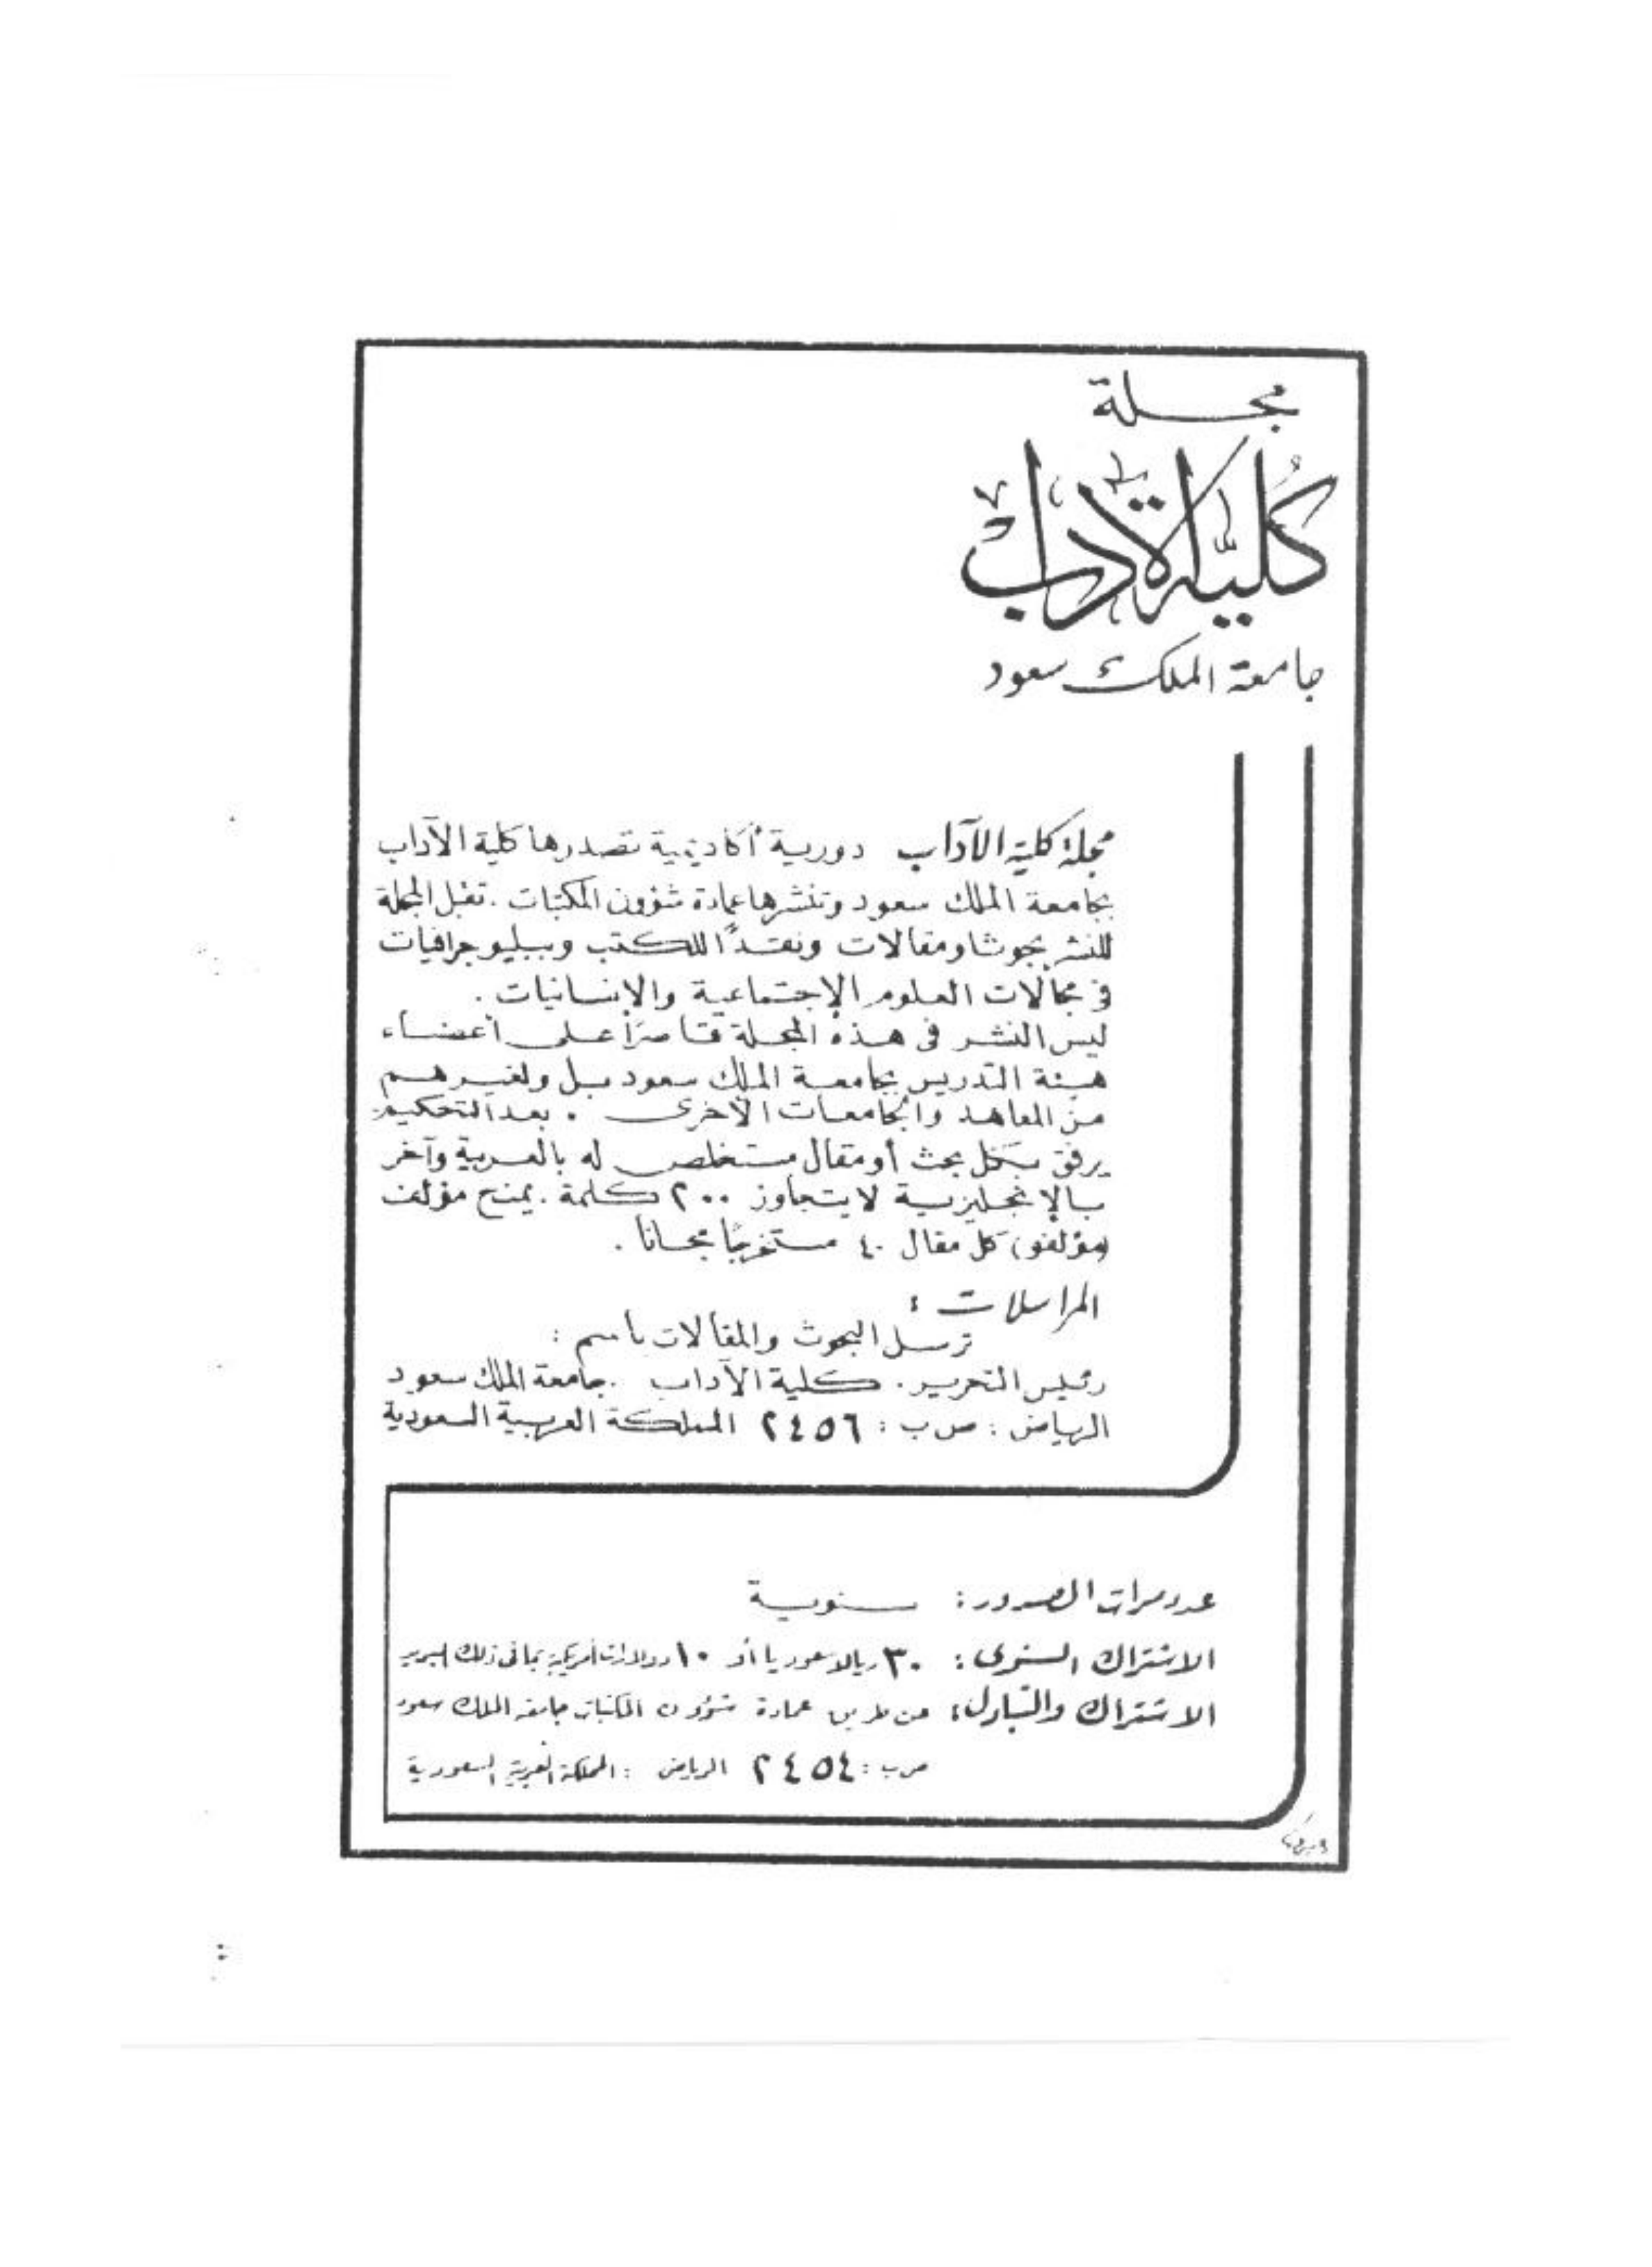 مجلة
كُليَّة الآداب
جامعة الملك سعود
مجلة كلية الآداب دورية أكاديمية تصدرها كلية الآداب
بجامعة الملك سعود وتنشرها عمادة شؤون المكتبات . تقبل المجلة
للنشر بحوثا ومقالات ونقدًا للكتب وببليوجرافيات
في مجالات العلوم الإجتماعية والإنسانيات .
ليس النشر في هذه المجلة قاصرًا على أعضاء
هيئة التدريس بجامعة الملك سعود بل ولغيرهم
من المعاهد والجامعات الأخرى . بعد التحكيم
يرفق بكل بحث أو مقال مستخلص له بالعربية وآخر
بالإنجليزية لا يتجاوز ٢٠٠ كلمة . يمنح مؤلف
(مؤلفو) كل مقال ٤٠ مستخرجًا مجانا .
المراسلات :
ترسل البحوث والمقالات باسم :
رئيس التحرير . كلية الآداب . جامعة الملك سعود
الرياض : ص ب : ٢٤٥٦ المملكة العربية السعودية
عدد مرات الصدور : سنوية
الاشتراك السنوى : ٣٠ ريالا سعوديا أو ١٠ دولارات أمريكية بما في ذلك البريد
الاشتراك والتبادل : عن طريق عمادة شؤون المكتبات جامعة الملك سعود
ص ب : ٢٤٥٤ الرياض : المملكة العربية السعودية